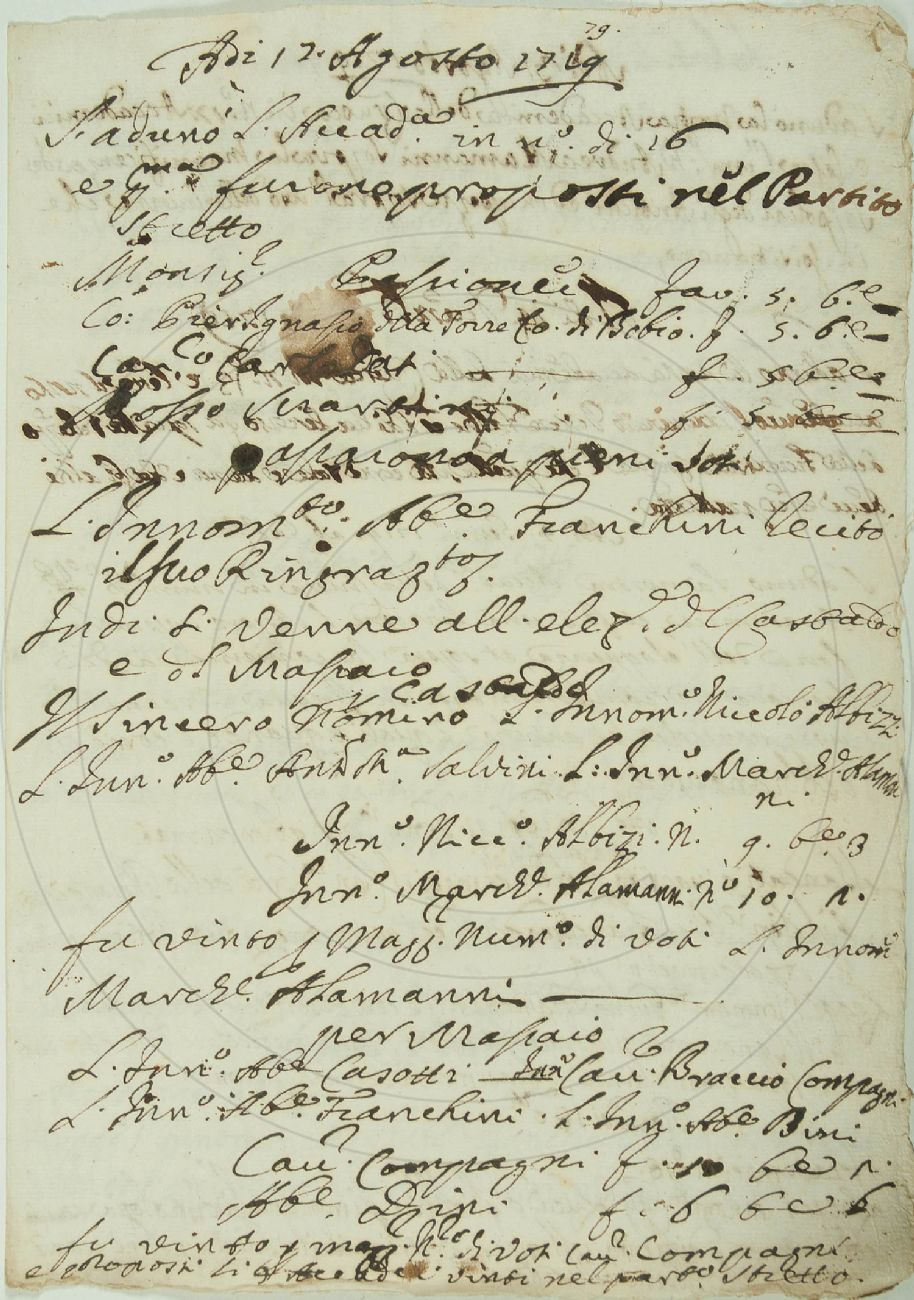 29.
Adi 12. Agosto 1719
S'adunò L. Accad.a in n.o di 16
e p.ma furono proposti nel Partito
stretto
Monsig.r Passionei fav. 5. b.e –
Co: Pier Ignasio della Torre Co. di Bobio. f. 5. b.e –
Can.co f. 5 b.e –
f. 5
passaionon pieni Voti
L. Innom.to Ab.e Franchini recitò
il suo Ringraz.to
Indi si venne all. elez.e d Castaldo
e dl Massaio
Castaldo
Il Sincero Nominò L. Innom.o Niccolò Albizzi
L. Inn.o Ab.e Ant. M.a Salvini. L: Inn.o March.e Alaman
ni
Inn.o Nicc.o Albizi. N. 9. b.e 3
Inn.o March.e Alamann. n.o 10. 1.
fu vinto p Magg. Num.o di voti L. Innom.o
March.e Alamanni
per Massaio
L. Inn.o Ab.e Casotti Inn.o Cav. Braccio Compagni
L. Inn.o Ab.e Franchini. L. Inn.o Ab.e Bini
Cav.r Compagni f. 10 be 1.
Ab.e Bini f. 6 be 6
fu vinto p magg. N.o di voti Cav.r Compagni
e proposti li vinti nel part.o Stretto.